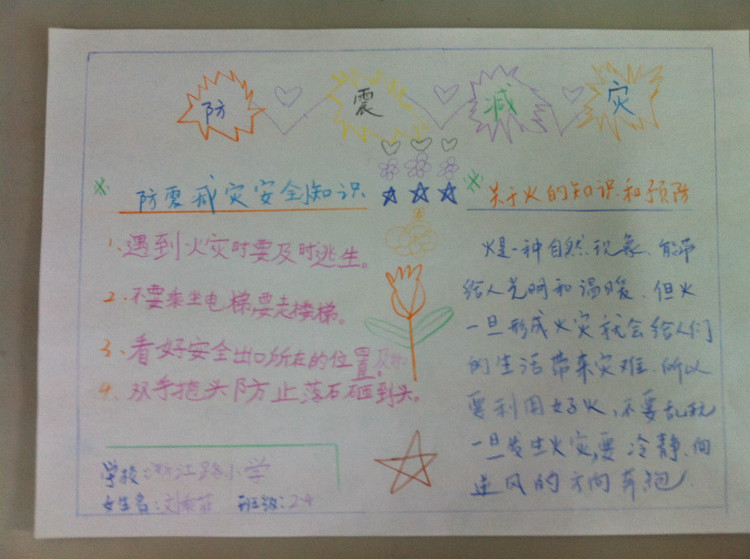 防震减灾
防震减灾安全知识
1、遇到火灾时要及时逃生。
2、不要乘坐电梯要走楼梯。
3、看好安全出口所在的位置
4、双手抱头防止落石砸到头。
学校:浙江路小学
女生名:刘 班级:2.4
关于火的知识和预防
火是一种自然现象、能带
给人光明和温暖、但火
一旦形成火灾就会给人们
的生活带来灾难、所以
要利用好火、不要乱玩
一旦发生火灾,要冷静、向
逆风的方向奔跑